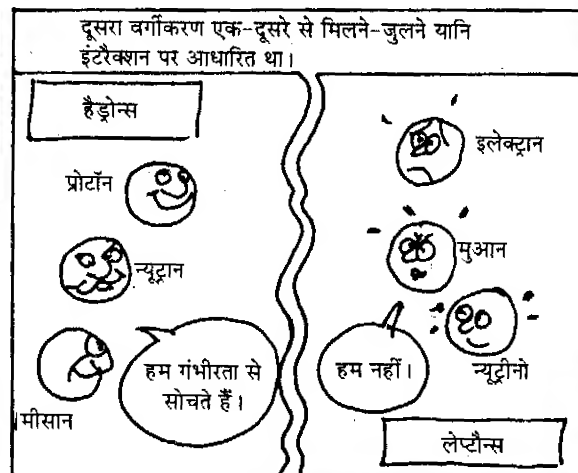 दूसरा वर्गीकरण एक-दूसरे से मिलने-जुलने यानि
इंटरैक्शन पर आधारित था।
हैड्रोन्स
प्रोटॉन
न्यूट्रान
मीसान
हम गंभीरता से
सोचते हैं।
इलेक्ट्रान
मुआन
न्यूट्रीनो
हम नहीं।
लेप्टौन्स